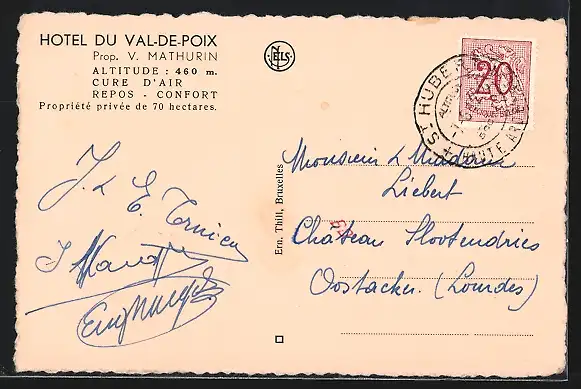 HOTEL DU VAL-DE-POIX
Prop. V. MATHURIN
ALTITUDE : 460 m.
CURE D'AIR
REPOS - CONFORT
Propriété privée de 70 hectares.
ELS
20
ST HUBE
Ern. Thill, Bruxelles
J. & E. Ternicu
Monsieur & Madame
Liebert
Château Slootendries
Oostacker (Lourdes)